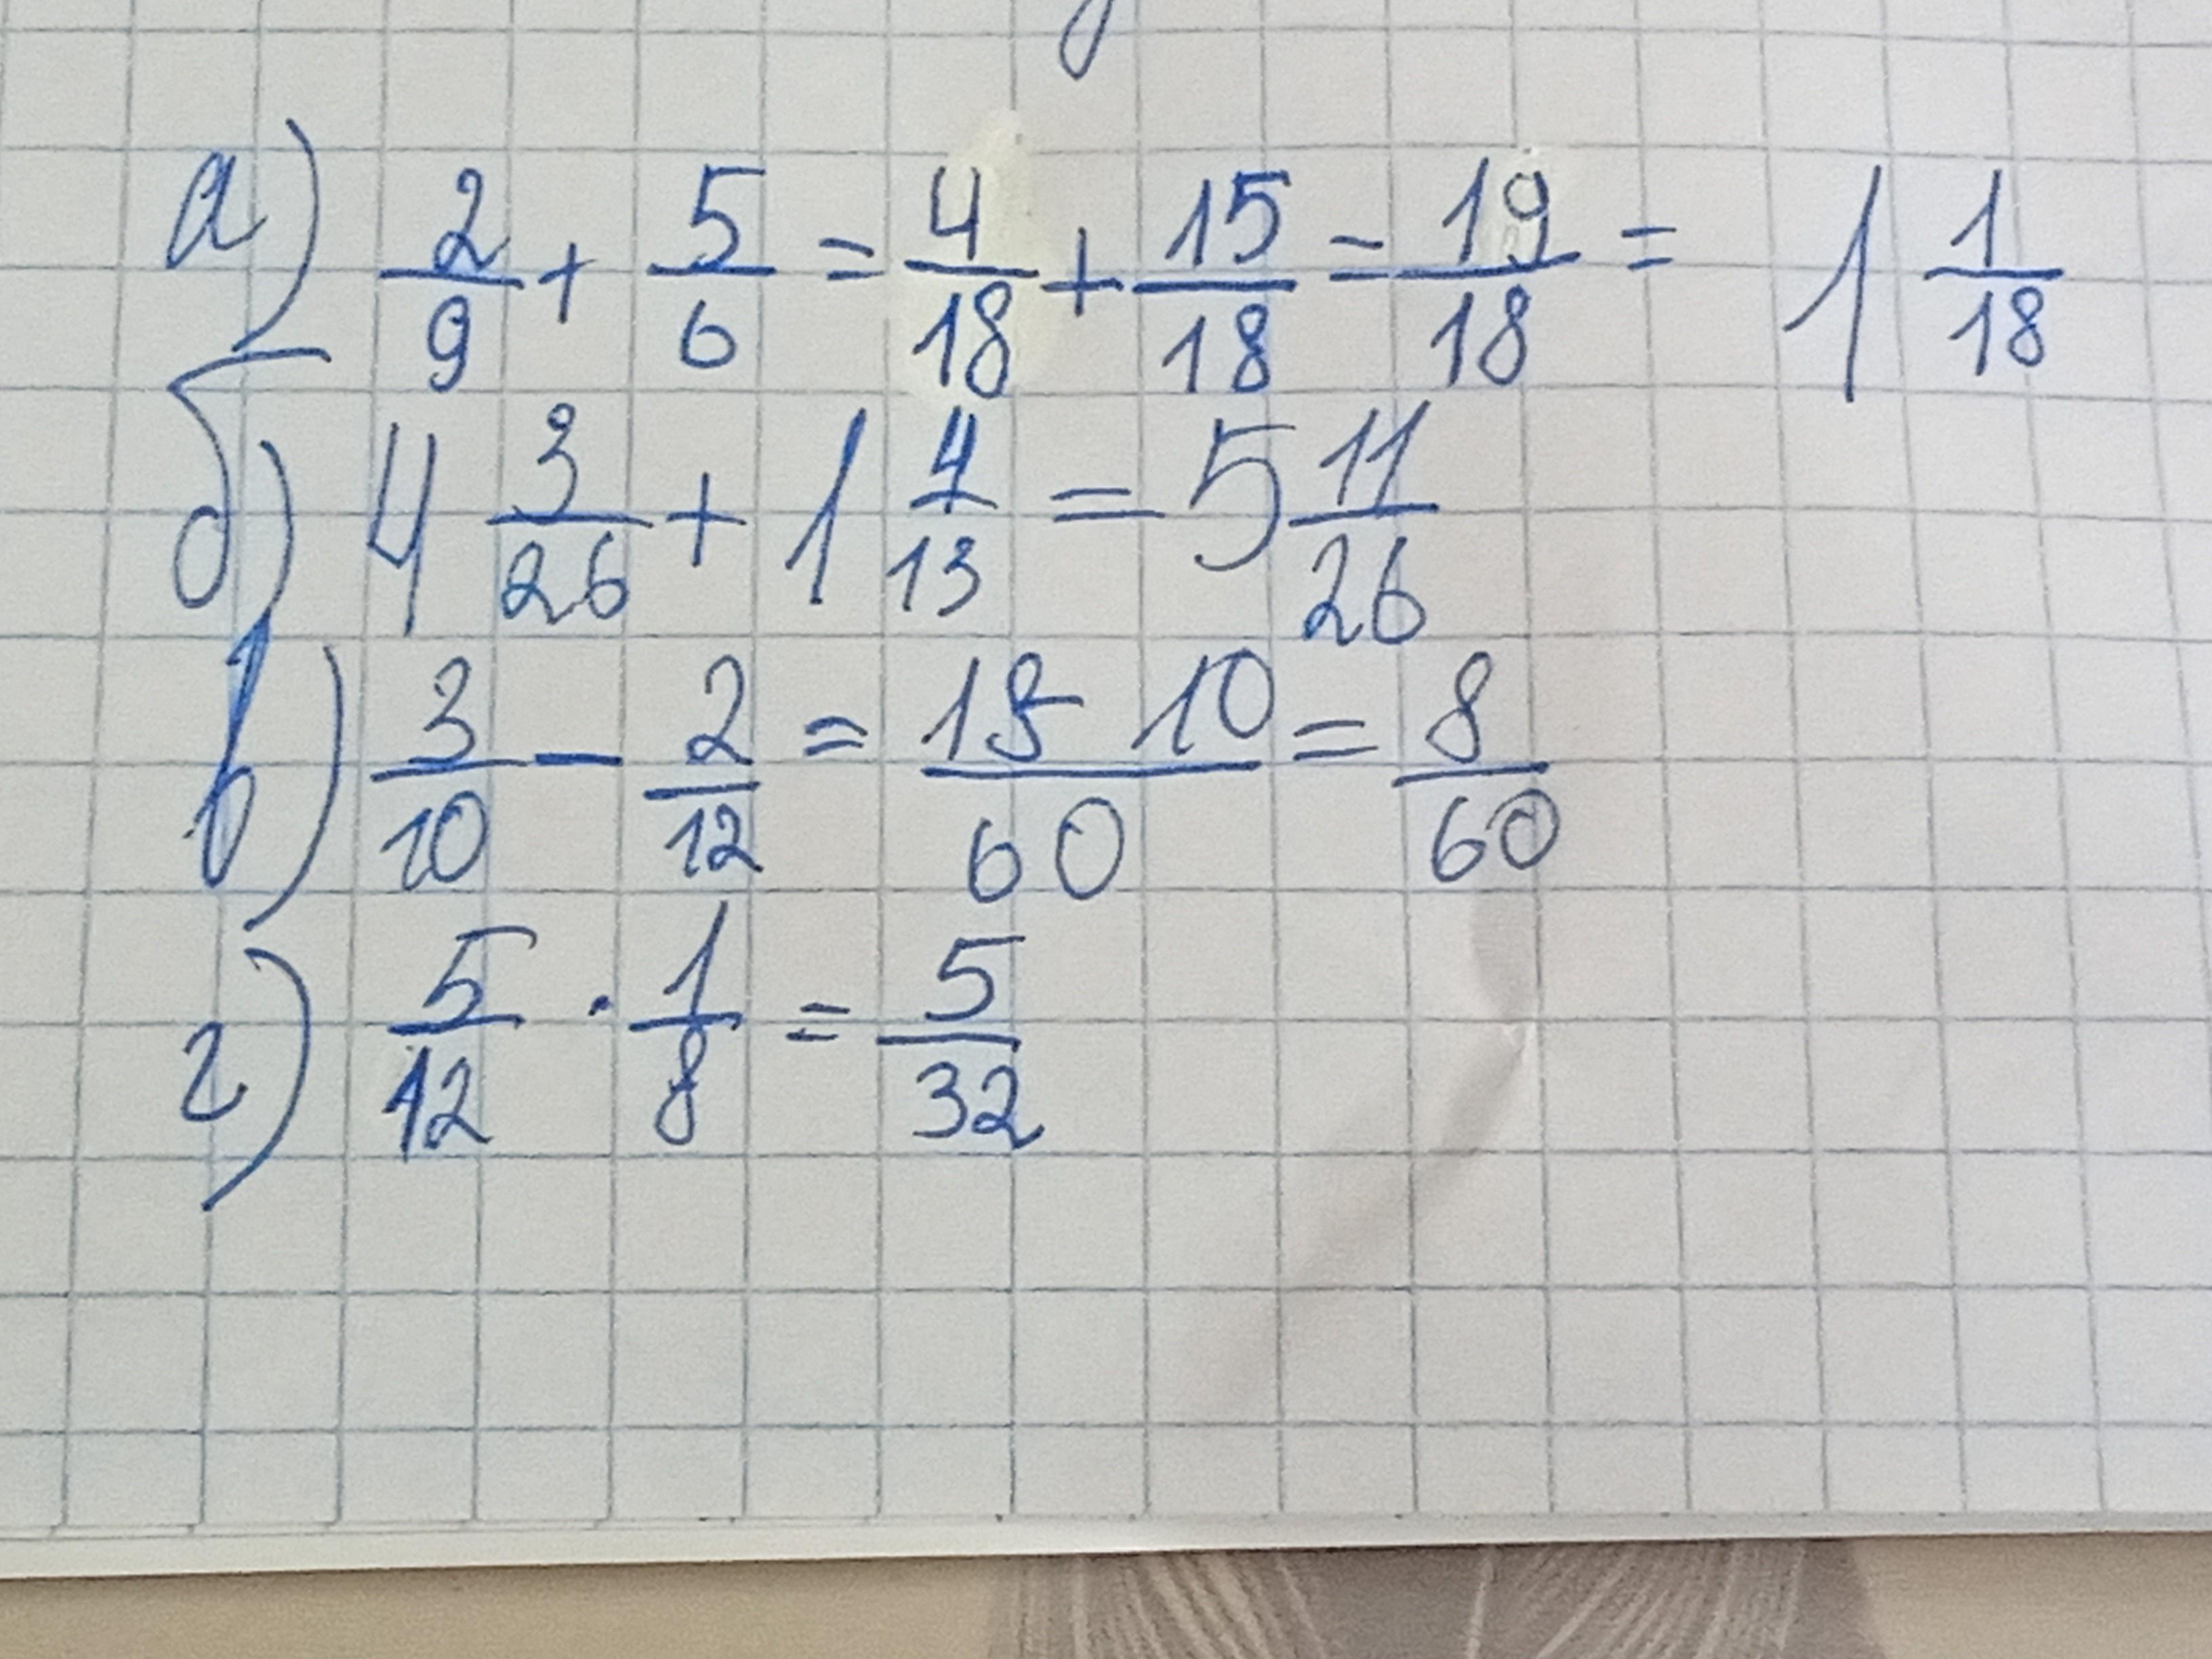 а) 2/9 + 5/6 = 4/18 + 15/18 = 19/18 = 1 1/18
б) 4 3/26 + 1 4/13 = 5 11/26
в) 3/10 - 2/12 = 18 10/60 = 8/60
г) 5/12 · 1/8 = 5/32